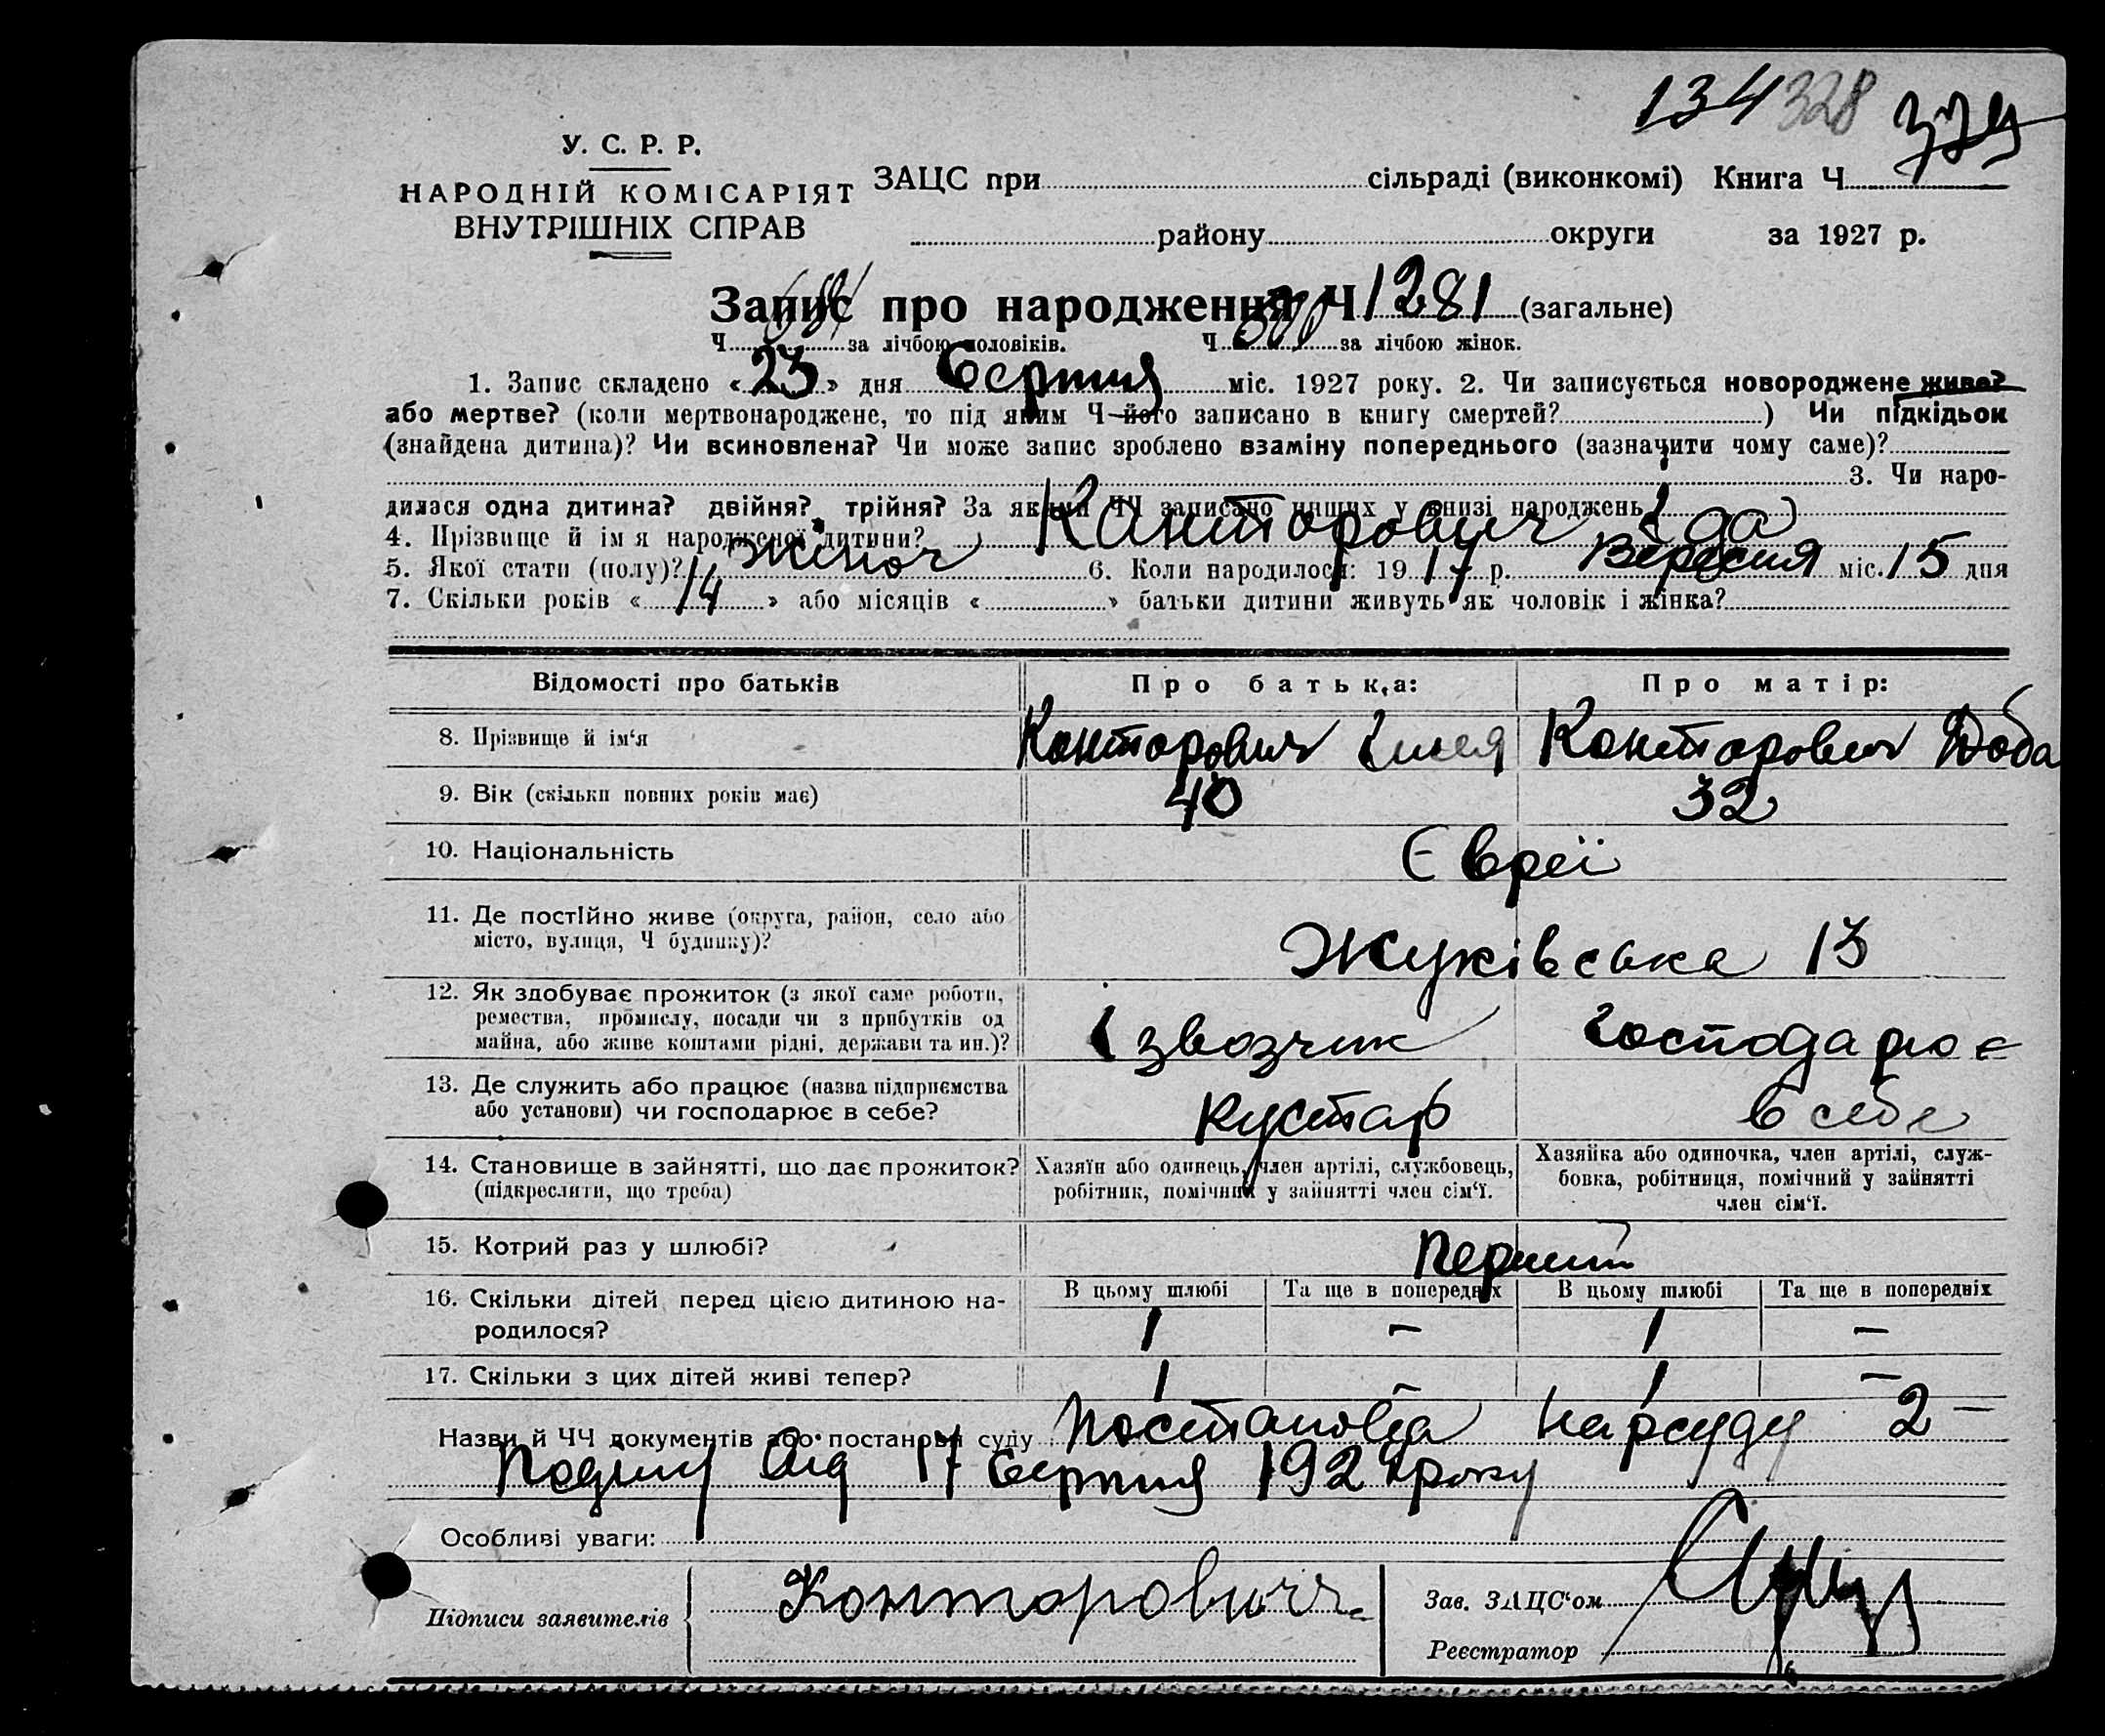 134 328
У. С. Р. Р.
НАРОДНІЙ КОМІСАРІЯТ
ВНУТРІШНІХ СПРАВ
ЗАЦС при сільраді (виконкомі) Книга Ч
району округи за 1927 р.
Запис про народження Ч 1281 (загальне)
Ч за лічбою чоловіків. Ч за лічбою жінок.
1. Запис складено « 23 » дня Серпня міс. 1927 року. 2. Чи записується новороджене живе?
або мертве? (коли мертвонароджене, то під яким Ч його записано в книгу смертей? ) Чи підкідьок
(знайдена дитина)? Чи всиновлена? Чи може запис зроблено взаміну попереднього (зазначити чому саме)?
3. Чи наро-
дилася одна дитина? двійня? трійня? За якими ЧЧ записано инших у книзі народжень
4. Прізвище й ім я народженої дитини? Канторович Іда
5. Якої стати (полу)? жіноч 6. Коли народилося: 19 17 р. Вересня міс. 15 дня
7. Скільки років « 14 » або місяців « » батьки дитини живуть як чоловік і жінка?
Відомості про батьків Про батька: Про матір:
8. Прізвище й ім'я Канторович Канторович Доба
9. Вік (скільки повних років має) 40 32
10. Національність Євреї
11. Де постійно живе (округа, район, село або
місто, вулиця, Ч будинку)? Жуківська 13
12. Як здобуває прожиток (з якої саме роботи,
ремества, промислу, посади чи з прибутків од
майна, або живе коштами рідні, держави та ин.)? Ізвозчик господарює
13. Де служить або працює (назва підприємства
або установи) чи господарює в себе? Кустар в себе
14. Становище в зайнятті, що дає прожиток?
(підкреслити, що треба)
Хазяїн або одинець, член артілі, службовець,
робітник, помічний у зайнятті член сім'ї.
Хазяйка або одиночка, член артілі, служ-
бовка, робітниця, помічний у зайнятті
член сім'ї.
15. Котрий раз у шлюбі? Перший
16. Скільки дітей перед цією дитиною на-
родилося?
В цьому шлюбі Та ще в попередніх В цьому шлюбі Та ще в попередніх
1 – 1 –
17. Скільки з цих дітей живі тепер? 1 – 1 –
Назви й ЧЧ документів або постанови суду Постанова Нарсуду 2 –
від 17 Серпня 1927 року
Особливі уваги:
Підписи заявителів Конторович
Зав. ЗАЦС'ом
Реєстратор